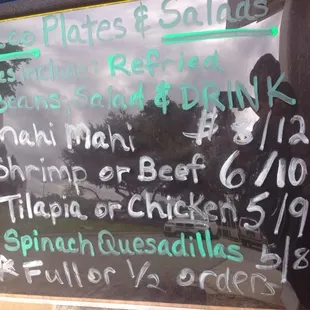 Plates & Salads
Refried
Beans, Salad & DRINK
mahi Mahi $ 8/12
Shrimp or Beef 6/10
Tilapia or Chicken 5/9
Spinach Quesadillas 5/8
* Full or 1/2 orders